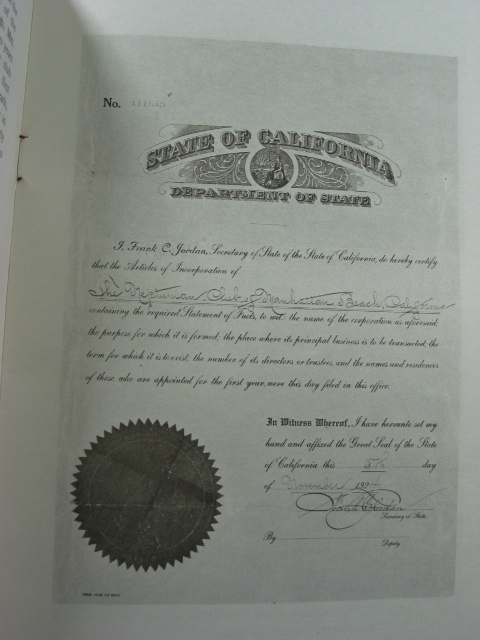 No.
STATE OF CALIFORNIA
DEPARTMENT OF STATE
I, Frank C. Jordan, Secretary of State of the State of California, do hereby certify
that the Articles of Incorporation of
The Neptunian Club of Manhattan Beach, California
containing the required Statement of Facts, to wit: the name of the corporation as aforesaid;
the purpose for which it is formed; the place where its principal business is to be transacted; the
term for which it is to exist; the number of its directors or trustees, and the names and residences
of those who are appointed for the first year, were this day filed in this office.
In Witness Whereof, I have hereunto set my
hand and affixed the Great Seal of the State
of California this day
of November 192
Frank C. Jordan
Secretary of State
By
Deputy